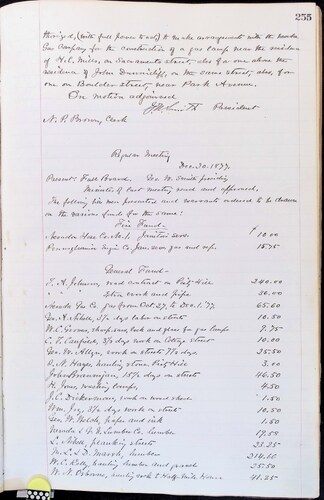 255
thorized, (with full power to act) to make arrangements with the Nevada
Gas Company for the construction of a gas lamp near the residence
of H.C. Mills, on Sacramento street, also for one above the
residence of John Dunnicliff, on the same street, also for
one on Boulder street, near Park Avenue.
On motion adjourned
Geo. W. Smith President
N. P. Brown, Clerk
Regular Meeting
Dec. 20. 1877.
Present: Full Board. Geo. W. Smith presiding
Minutes of last meeting read and approved.
The following bills were presented and warrants ordered to be drawn
on the various funds for the same:
Fire Fund—
Nevada Hose Co. No. 1. Janitor serv. $ 10.00
Pennsylvania Engine Co. Jan. serv. gas and rep. 15.75
General Fund—
T. A. Johnson, road contract on Piety Hill 240.00
" " other work and pipe 30.00
Nevada Gas Co gas from Oct. 27, to Dec. 1. 77 65.60
days labor on streets 10.50
W. C. Groves, and glass for gas lamps 7.75
C. T. Canfield, 3⅓ days work on street 10.00
Geo. W. Allgen, work on streets 7⅓ days 25.50
hauling stone Piety Hill 3.00
John 15½ days on streets 46.50
H. Jones, washing lamps, 4.50
J. C. Dickerman, work on shed 1.50
Wm. Jay, 3½ days work on street 10.50
Geo. W. Welch, paper and ink 1.50
Nevada & Lumber Co. lumber 17.50
L. Nihell, planking streets 23.25
M. L. & D. Marsh, lumber 214.50
W. C. hauling lumber and gravel 25.50
W. H. work & Half Mile House 41.25